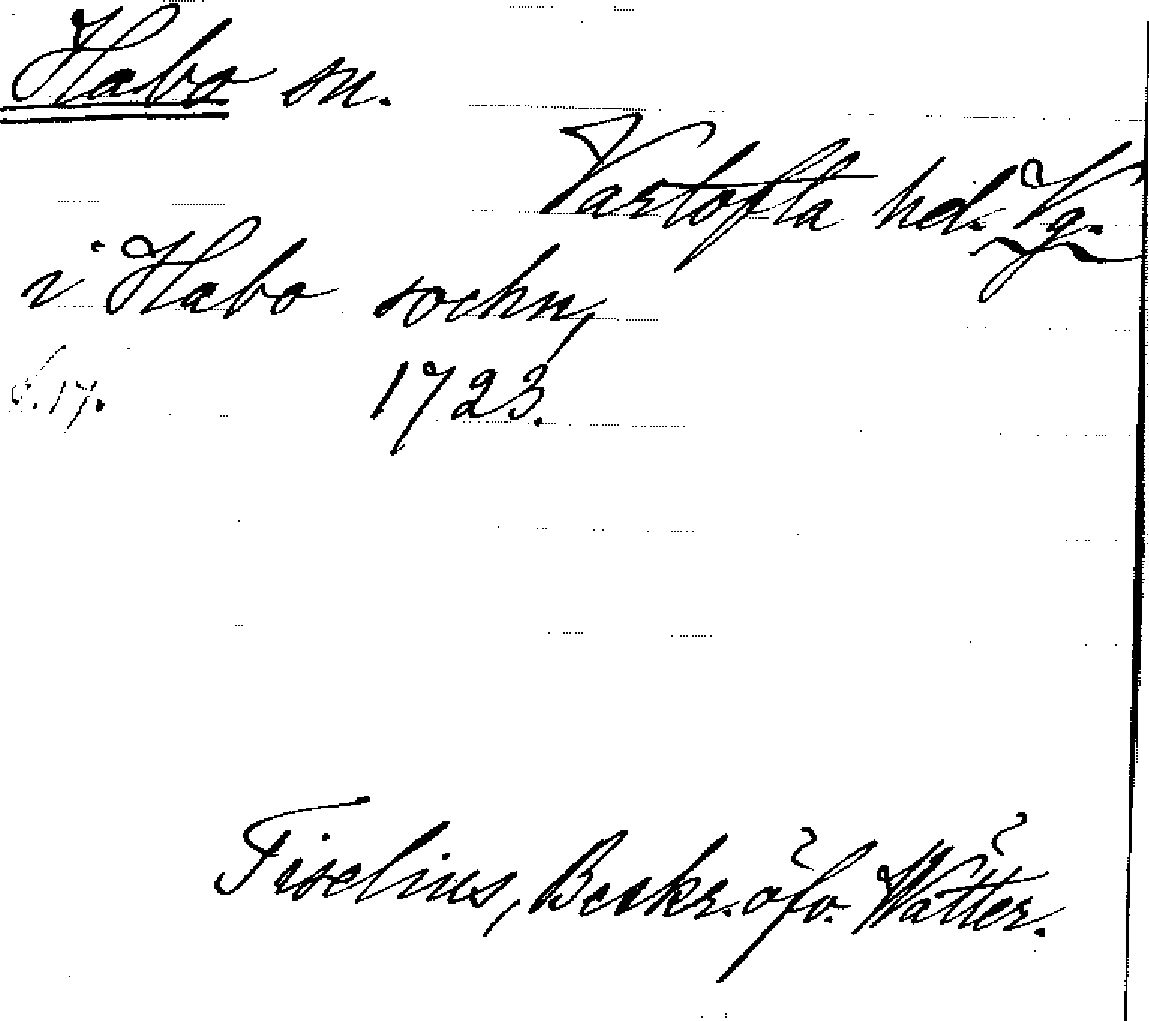 Habo sn.
Vartofta hd. Vg.
i Habo sochn,
s. 17. 1723.
Tiselius, Beskr. öfv. Wätter.